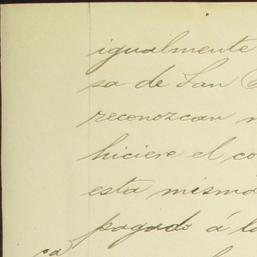 igualmente
sa de San
reconozcan
hiciere el co
esta misma
pagado á la